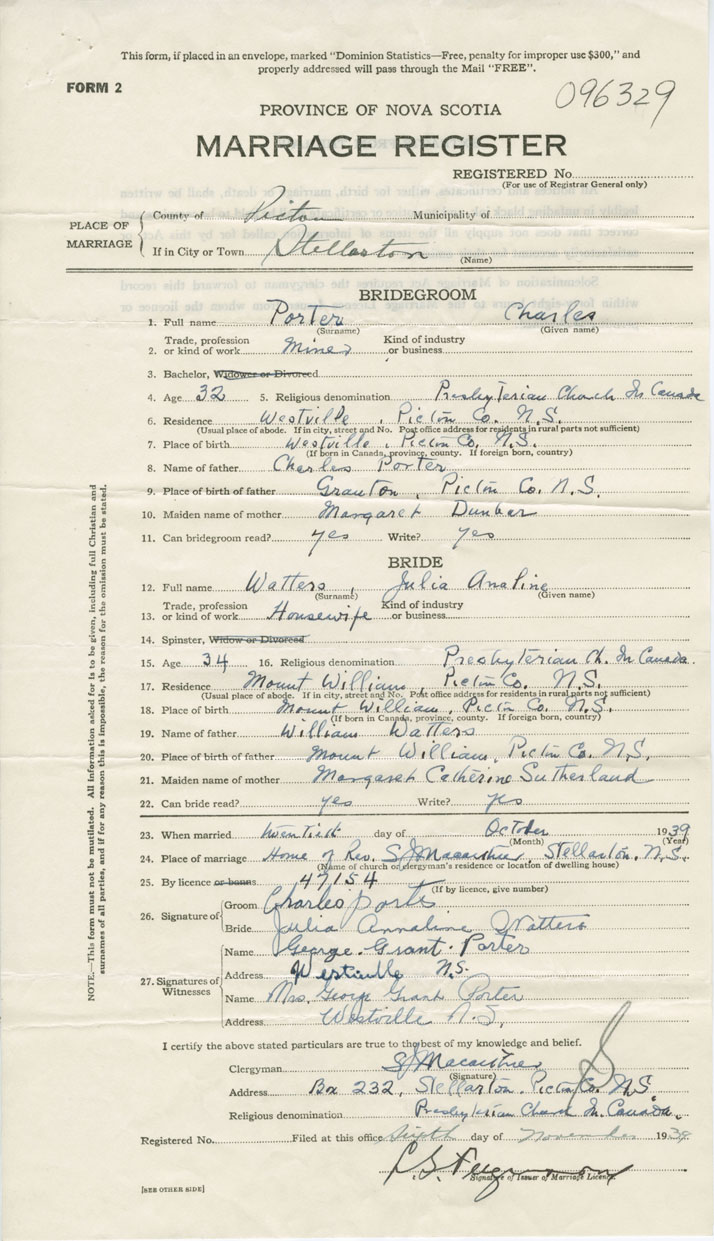 This form, if placed in an envelope, marked "Dominion Statistics—Free, penalty for improper use $300," and
properly addressed will pass through the Mail "FREE".
FORM 2
096329
PROVINCE OF NOVA SCOTIA
MARRIAGE REGISTER
REGISTERED No.
(For use of Registrar General only)
PLACE OF MARRIAGE
County of Pictou Municipality of
If in City or Town Stellarton
(Name)
BRIDEGROOM
1. Full name Porter Charles
(Surname) (Given name)
2. Trade, profession or kind of work Miner Kind of industry or business
3. Bachelor, Widower or Divorced
4. Age 32 5. Religious denomination Presbyterian Church In Canada
6. Residence Westville, Pictou Co. N.S.
(Usual place of abode. If in city, street and No. Post office address for residents in rural parts not sufficient)
7. Place of birth Westville, Pictou Co. N.S.
(If born in Canada, province, county. If foreign born, country)
8. Name of father Charles Porter
9. Place of birth of father Granton, Pictou Co. N.S.
10. Maiden name of mother Margaret Dunbar
11. Can bridegroom read? yes Write? yes
BRIDE
12. Full name Watters, Julia Analine
(Surname) (Given name)
13. Trade, profession or kind of work Housewife Kind of industry or business
14. Spinster, Widow or Divorced
15. Age 34 16. Religious denomination Presbyterian Ch. In Canada.
17. Residence Mount William, Pictou Co. N.S.
(Usual place of abode. If in city, street and No. Post office address for residents in rural parts not sufficient)
18. Place of birth Mount William, Pictou Co. N.S.
(If born in Canada, province, county. If foreign born, country)
19. Name of father William Watters
20. Place of birth of father Mount William, Pictou Co. N.S.
21. Maiden name of mother Margaret Catherine Sutherland
22. Can bride read? yes Write? yes
23. When married twentieth day of October 1939
(Month) (Year)
24. Place of marriage Home of Rev. S J Macarthur, Stellarton, N.S.
(Name of church or clergyman's residence or location of dwelling house)
25. By licence or banns 47154
(If by licence, give number)
26. Signature of
Groom Charles Porter
Bride Julia Annaline Watters
27. Signatures of Witnesses
Name George Grant Porter
Address Westville N.S.
Name Mrs. George Grant Porter
Address Westville N.S.
I certify the above stated particulars are true to the best of my knowledge and belief.
Clergyman S J Macarthur
(Signature)
Address Box 232, Stellarton. Pictou Co. N.S.
Religious denomination Presbyterian Church In Canada.
Registered No. Filed at this office sixth day of November 1939
Signature of Issuer of Marriage Licence
[SEE OTHER SIDE]
NOTE.—This form must not be mutilated. All information asked for is to be given, including full Christian and
surnames of all parties, and if for any reason this is impossible, the reason for the omission must be stated.